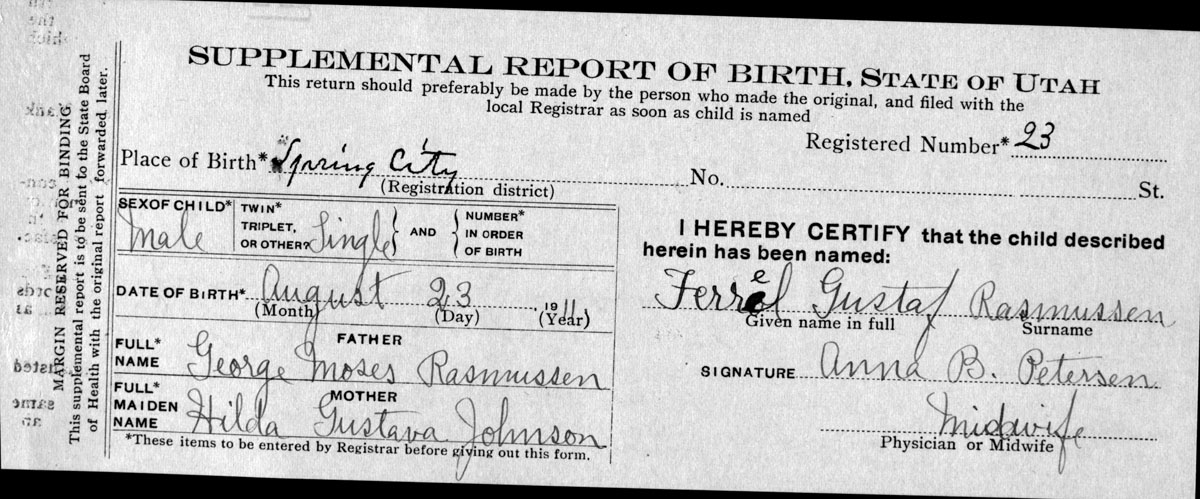 SUPPLEMENTAL REPORT OF BIRTH, STATE OF UTAH
This return should preferably be made by the person who made the original, and filed with the
local Registrar as soon as child is named
Registered Number* 23
Place of Birth* Spring City No. St.
(Registration district)
SEX OF CHILD* Male TWIN* TRIPLET, OR OTHER? Single AND NUMBER* IN ORDER OF BIRTH
DATE OF BIRTH* August 23 1911
(Month) (Day) (Year)
FATHER
FULL* NAME George Moses Rasmussen
MOTHER
FULL* MAIDEN NAME Hilda Gustava Johnson
*These items to be entered by Registrar before giving out this form.
I HEREBY CERTIFY that the child described
herein has been named:
Ferrel Gustaf Rasmussen
Given name in full Surname
SIGNATURE Anna B. Petersen
Midwife
Physician or Midwife
MARGIN RESERVED FOR BINDING
This supplemental report is to be sent to the State Board
of Health with the original report forwarded later.